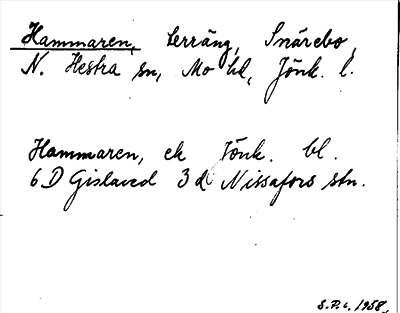 Hammaren, terräng, Snärebo,
N. Hestra sn, Mo hd, Jönk. l.
Hammaren, ek Jönk. bl.
6 D Gislaved 3 d Nissafors stn.
S.P.c. 1958.